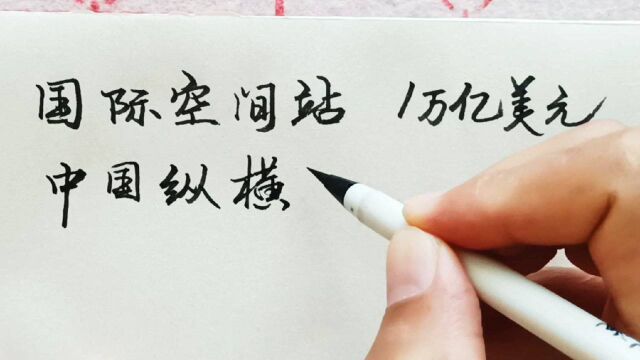 国际空间站 1万亿美元
中国纵横